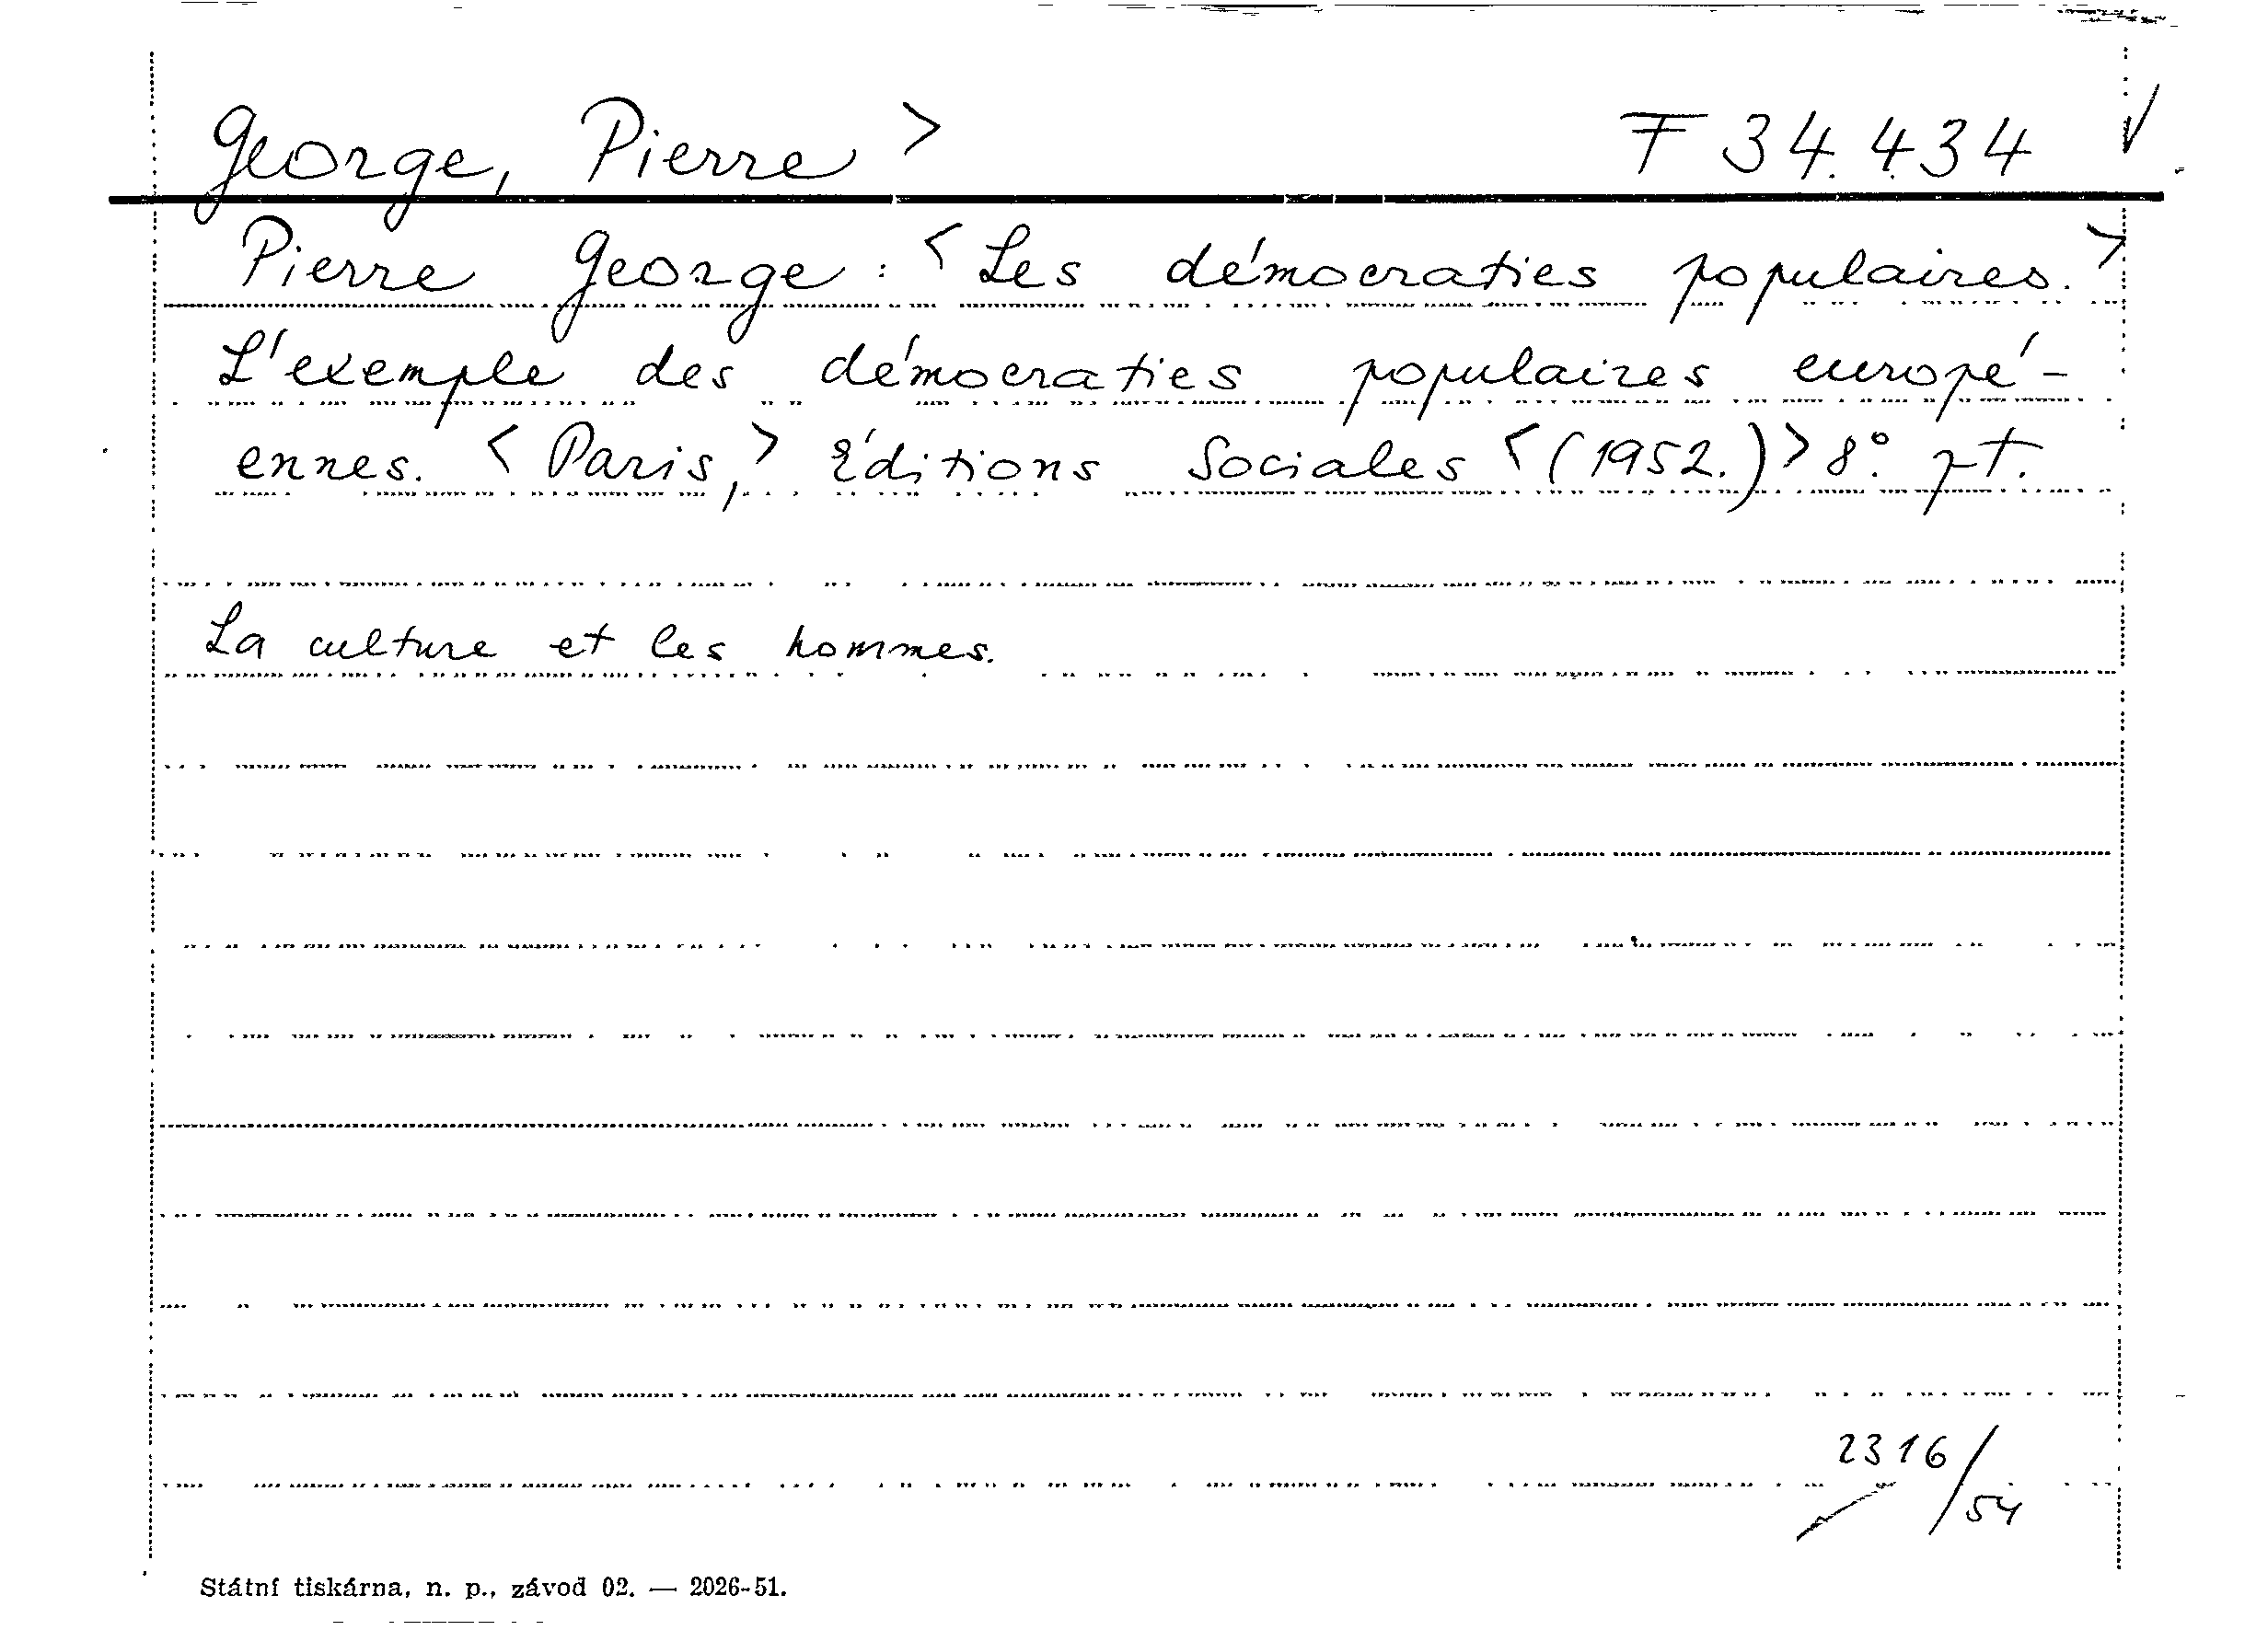 George, Pierre > F 34.434 √
Pierre George: <Les démocraties populaires.>
L'exemple des démocraties populaires europé-
ennes. <Paris,> Éditions Sociales <(1952.)> 8°. pt.
La culture et les hommes.
2316/54
Státní tiskárna, n. p., závod 02. — 2026-51.